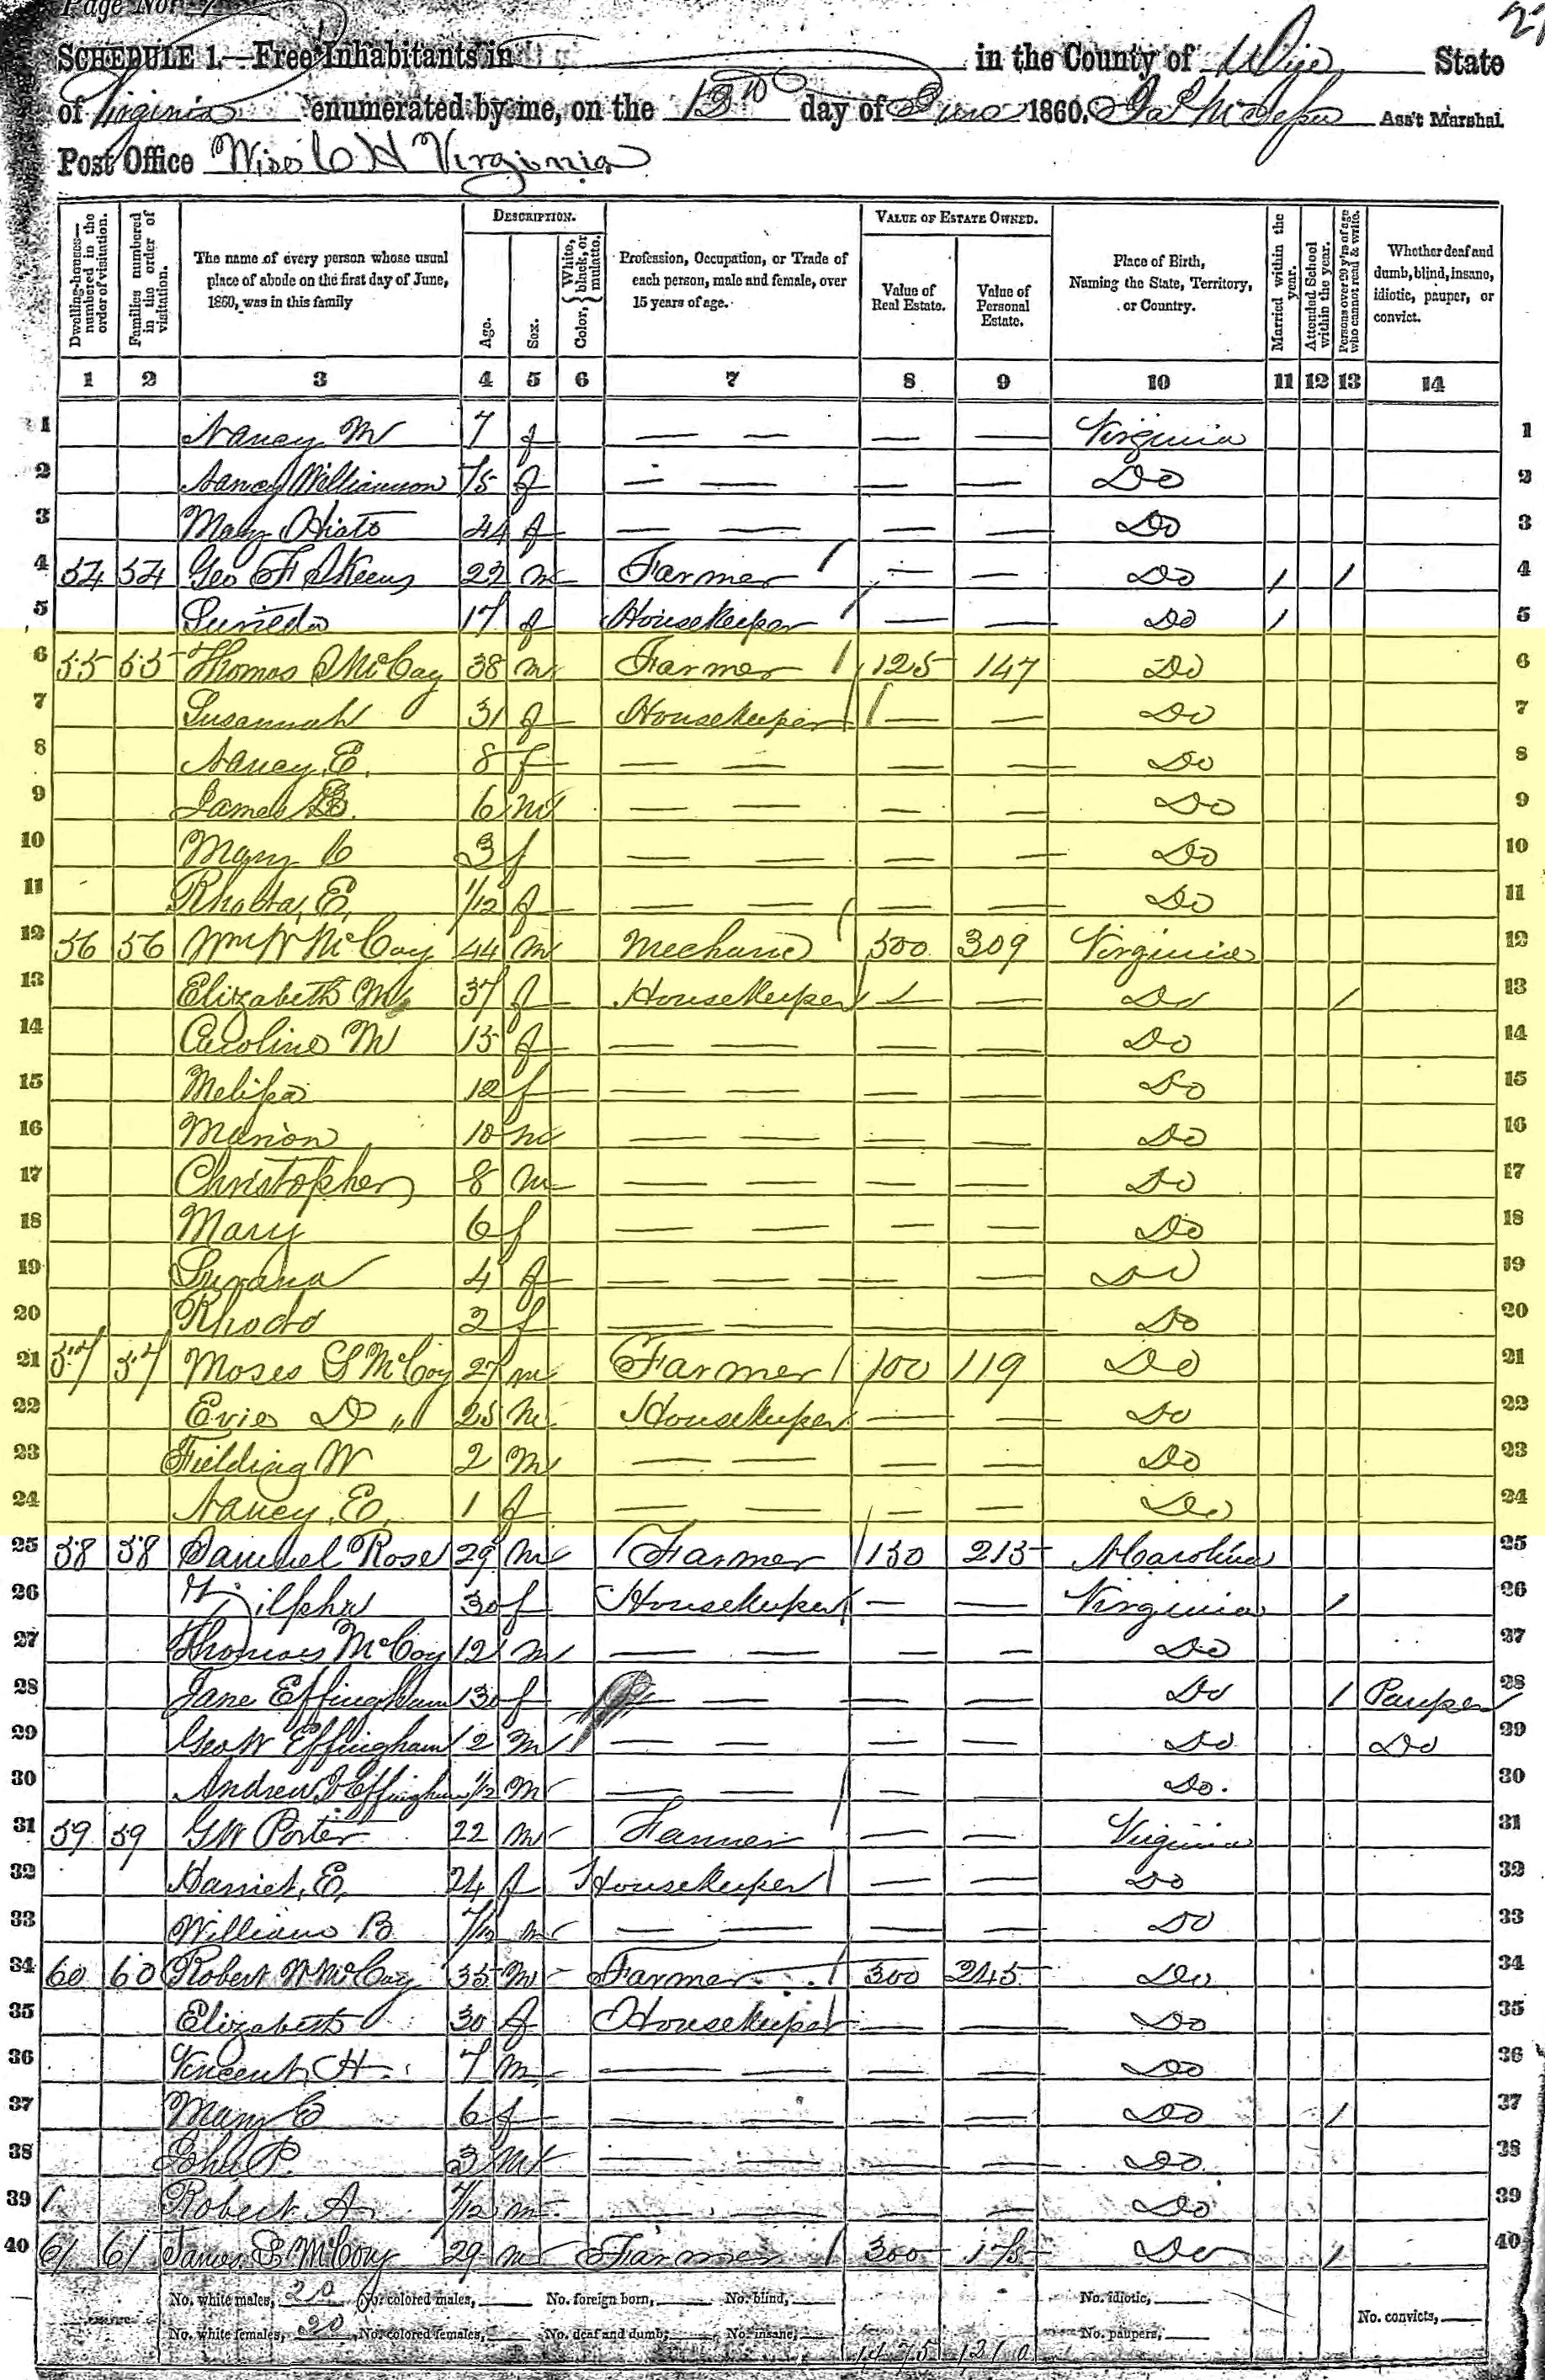 Page No. 7
SCHEDULE 1.—Free Inhabitants in in the County of Wise State
of Virginia enumerated by me, on the 13th day of June 1860. Ass't Marshal.
Post Office Wise C H Virginia
DESCRIPTION. VALUE OF ESTATE OWNED.
Dwelling-houses—numbered in the order of visitation. Families numbered in the order of visitation. The name of every person whose usual place of abode on the first day of June, 1860, was in this family Age. Sex. Color, { White, black, or mulatto. Profession, Occupation, or Trade of each person, male and female, over 15 years of age. Value of Real Estate. Value of Personal Estate. Place of Birth, Naming the State, Territory, or Country. Married within the year. Attended School within the year. Persons over 20 y'rs of age who cannot read & write. Whether deaf and dumb, blind, insane, idiotic, pauper, or convict.
1 2 3 4 5 6 7 8 9 10 11 12 13 14
1 Nancy M 7 f — — — — Virginia 1
2 Nancy Williamson 75 f — — — — Do 2
3 Mary 44 f — — — — Do 3
4 54 54 Geo F Skeens 22 m Farmer / — — Do / / 4
5 17 f Housekeeper / — — Do / 5
6 55 55 Thomas S McCoy 38 m Farmer / 125 147 Do 6
7 Susannah 31 f Housekeeper / — — Do 7
8 Nancy, E. 8 f — — — — Do 8
9 James 6 m — — — — Do 9
10 Mary C 3 f — — — — Do 10
11 E. 1/12 f — — — — Do 11
12 56 56 Wm W McCoy 44 m Mechanic / 500 309 Virginia 12
13 Elizabeth M 37 f Housekeeper / — — Do / 13
14 Caroline M 15 f — — — — Do 14
15 Melissa 12 f — — — — Do 15
16 Marion 10 m — — — — Do 16
17 Christopher 8 m — — — — Do 17
18 Mary 6 f — — — — Do 18
19 Susana 4 f — — — — Do 19
20 Rhoda 2 f — — — — Do 20
21 57 57 Moses S McCoy 27 m Farmer / 100 119 Do 21
22 Evie D " 25 m Housekeeper — — Do 22
23 Fielding W 2 m — — — — Do 23
24 Nancy, E, 1 f — — — — Do 24
25 58 58 Samuel Rose 29 m Farmer / 150 215 N Carolina 25
26 Zilpha 30 f Housekeeper / — — Virginia / 26
27 Thomas McCoy 12 m — — — — Do 27
28 Jane Effingham 30 f — — — — Do / Pauper 28
29 Geo W Effingham 2 m — — — — Do Do 29
30 Andrew J Effingham 1/12 m — — — — Do. 30
31 59 59 G W Porter 22 m Farmer — — Virginia 31
32 Harriet, E, 24 f Housekeeper / — — Do 32
33 William B 7/12 m — — — — Do 33
34 60 60 Robert W McCoy 35 m Farmer / 300 245 Do 34
35 Elizabeth 30 f Housekeeper — — Do 35
36 Vincent, H. 7 m — — — — Do 36
37 Mary E 6 f — — — — Do / 37
38 John P. 3 m — — — — Do 38
39 Robert A 7/12 m — — — — Do 39
40 61 61 James S McCoy 29 m Farmer / 300 175 Do / 40
No. white males, 20 No. colored males, No. foreign born, No. blind, No. idiotic, No. convicts,
No. white females, 20 No. colored females, No. deaf and dumb, No. insane, No. paupers,
1475 1210